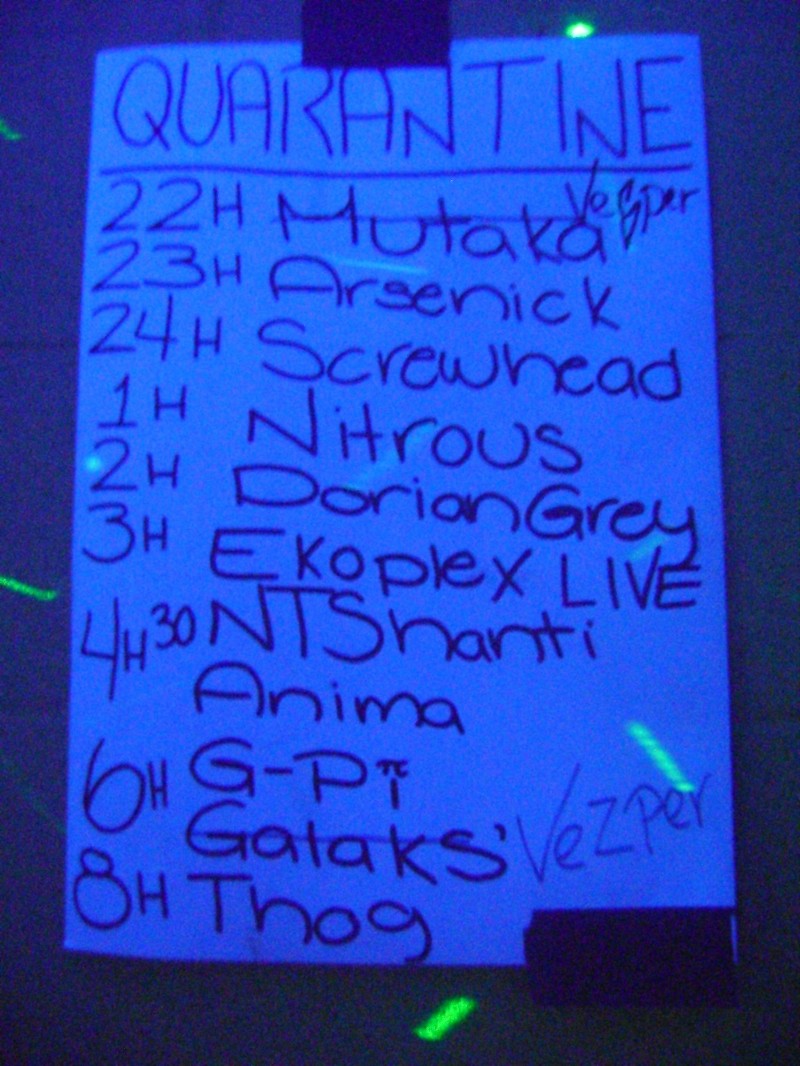 QUARANTINE
22H Mutaka Vezper
23H Arsenick
24H Screwhead
1H Nitrous
2H DorianGrey
3H Ekoplex LIVE
4H30 NTShanti
Anima
6H G-Pπ
Galaks' Vezper
8H Thog